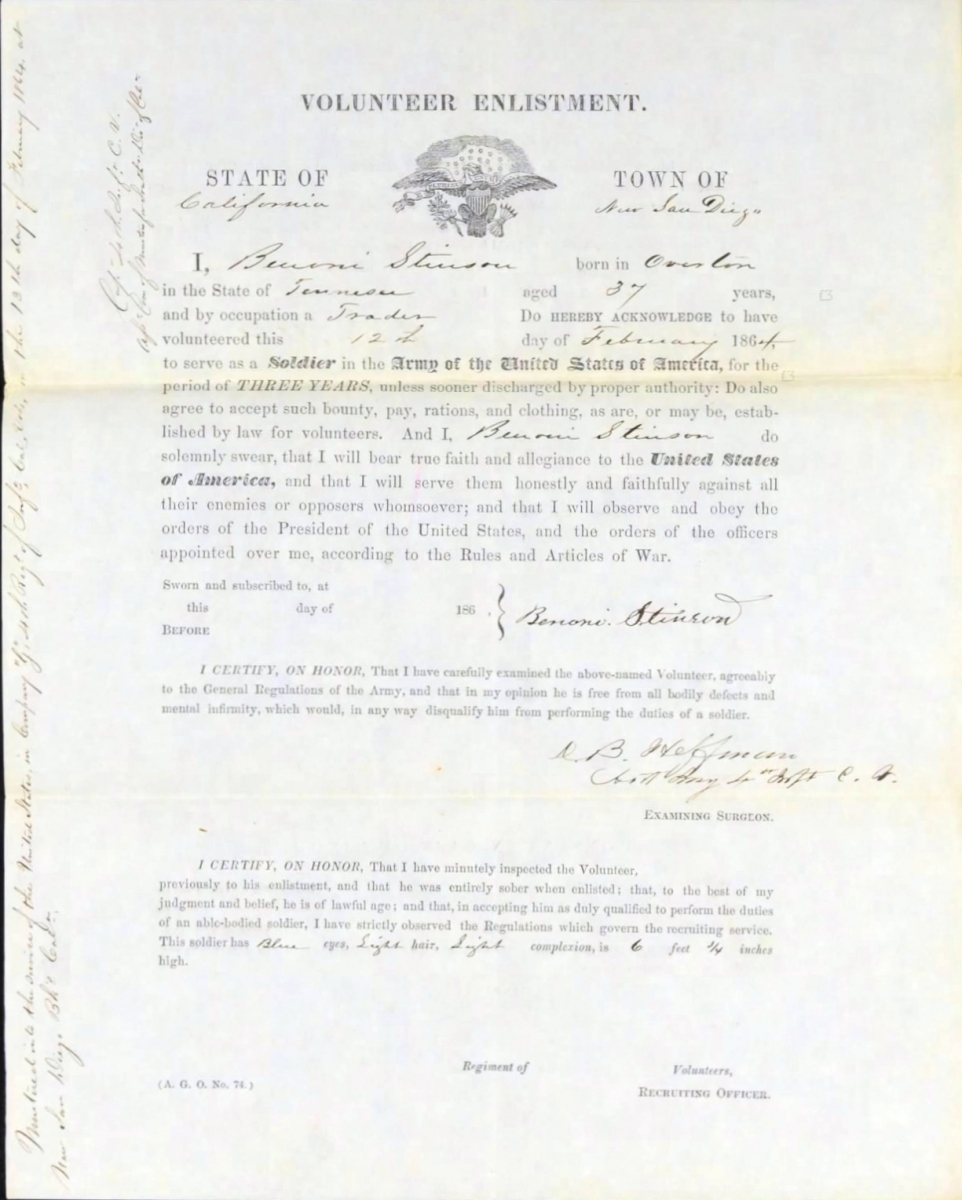 VOLUNTEER ENLISTMENT.
STATE OF TOWN OF
California New San Diego
I, Benoni Stinson born in Overton
in the State of Tennesee aged 37 years,
and by occupation a Trader Do HEREBY ACKNOWLEDGE to have
volunteered this 12th day of February 1864,
to serve as a Soldier in the Army of the United States of America, for the
period of THREE YEARS, unless sooner discharged by proper authority: Do also
agree to accept such bounty, pay, rations, and clothing, as are, or may be, estab-
lished by law for volunteers. And I, Benoni Stinson do
solemnly swear, that I will bear true faith and allegiance to the United States
of America, and that I will serve them honestly and faithfully against all
their enemies or opposers whomsoever; and that I will observe and obey the
orders of the President of the United States, and the orders of the officers
appointed over me, according to the Rules and Articles of War.
Sworn and subscribed to, at
this day of 186 .
BEFORE
Benoni. Stinson
I CERTIFY, ON HONOR, That I have carefully examined the above-named Volunteer, agreeably
to the General Regulations of the Army, and that in my opinion he is free from all bodily defects and
mental infirmity, which would, in any way disqualify him from performing the duties of a soldier.
B. Hoffman
4th Inft C. V.
EXAMINING SURGEON.
I CERTIFY, ON HONOR, That I have minutely inspected the Volunteer,
previously to his enlistment, and that he was entirely sober when enlisted; that, to the best of my
judgment and belief, he is of lawful age; and that, in accepting him as duly qualified to perform the duties
of an able-bodied soldier, I have strictly observed the Regulations which govern the recruiting service.
This soldier has Blue eyes, Light hair, Light complexion, is 6 feet 1/4 inches
high.
Regiment of Volunteers,
(A. G. O. No. 74.)
RECRUITING OFFICER.
Mustered into the service of the United States, in Company "G" 4th Regt of Inft Cal. Vols, on the 13th day of February 1864, at
New San Diego Cala.
Capt 4th Inft C. V.